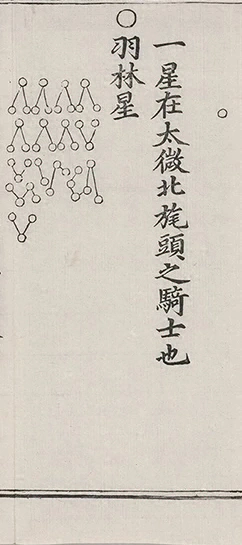 一星在太微北旄頭之騎士也
羽林星